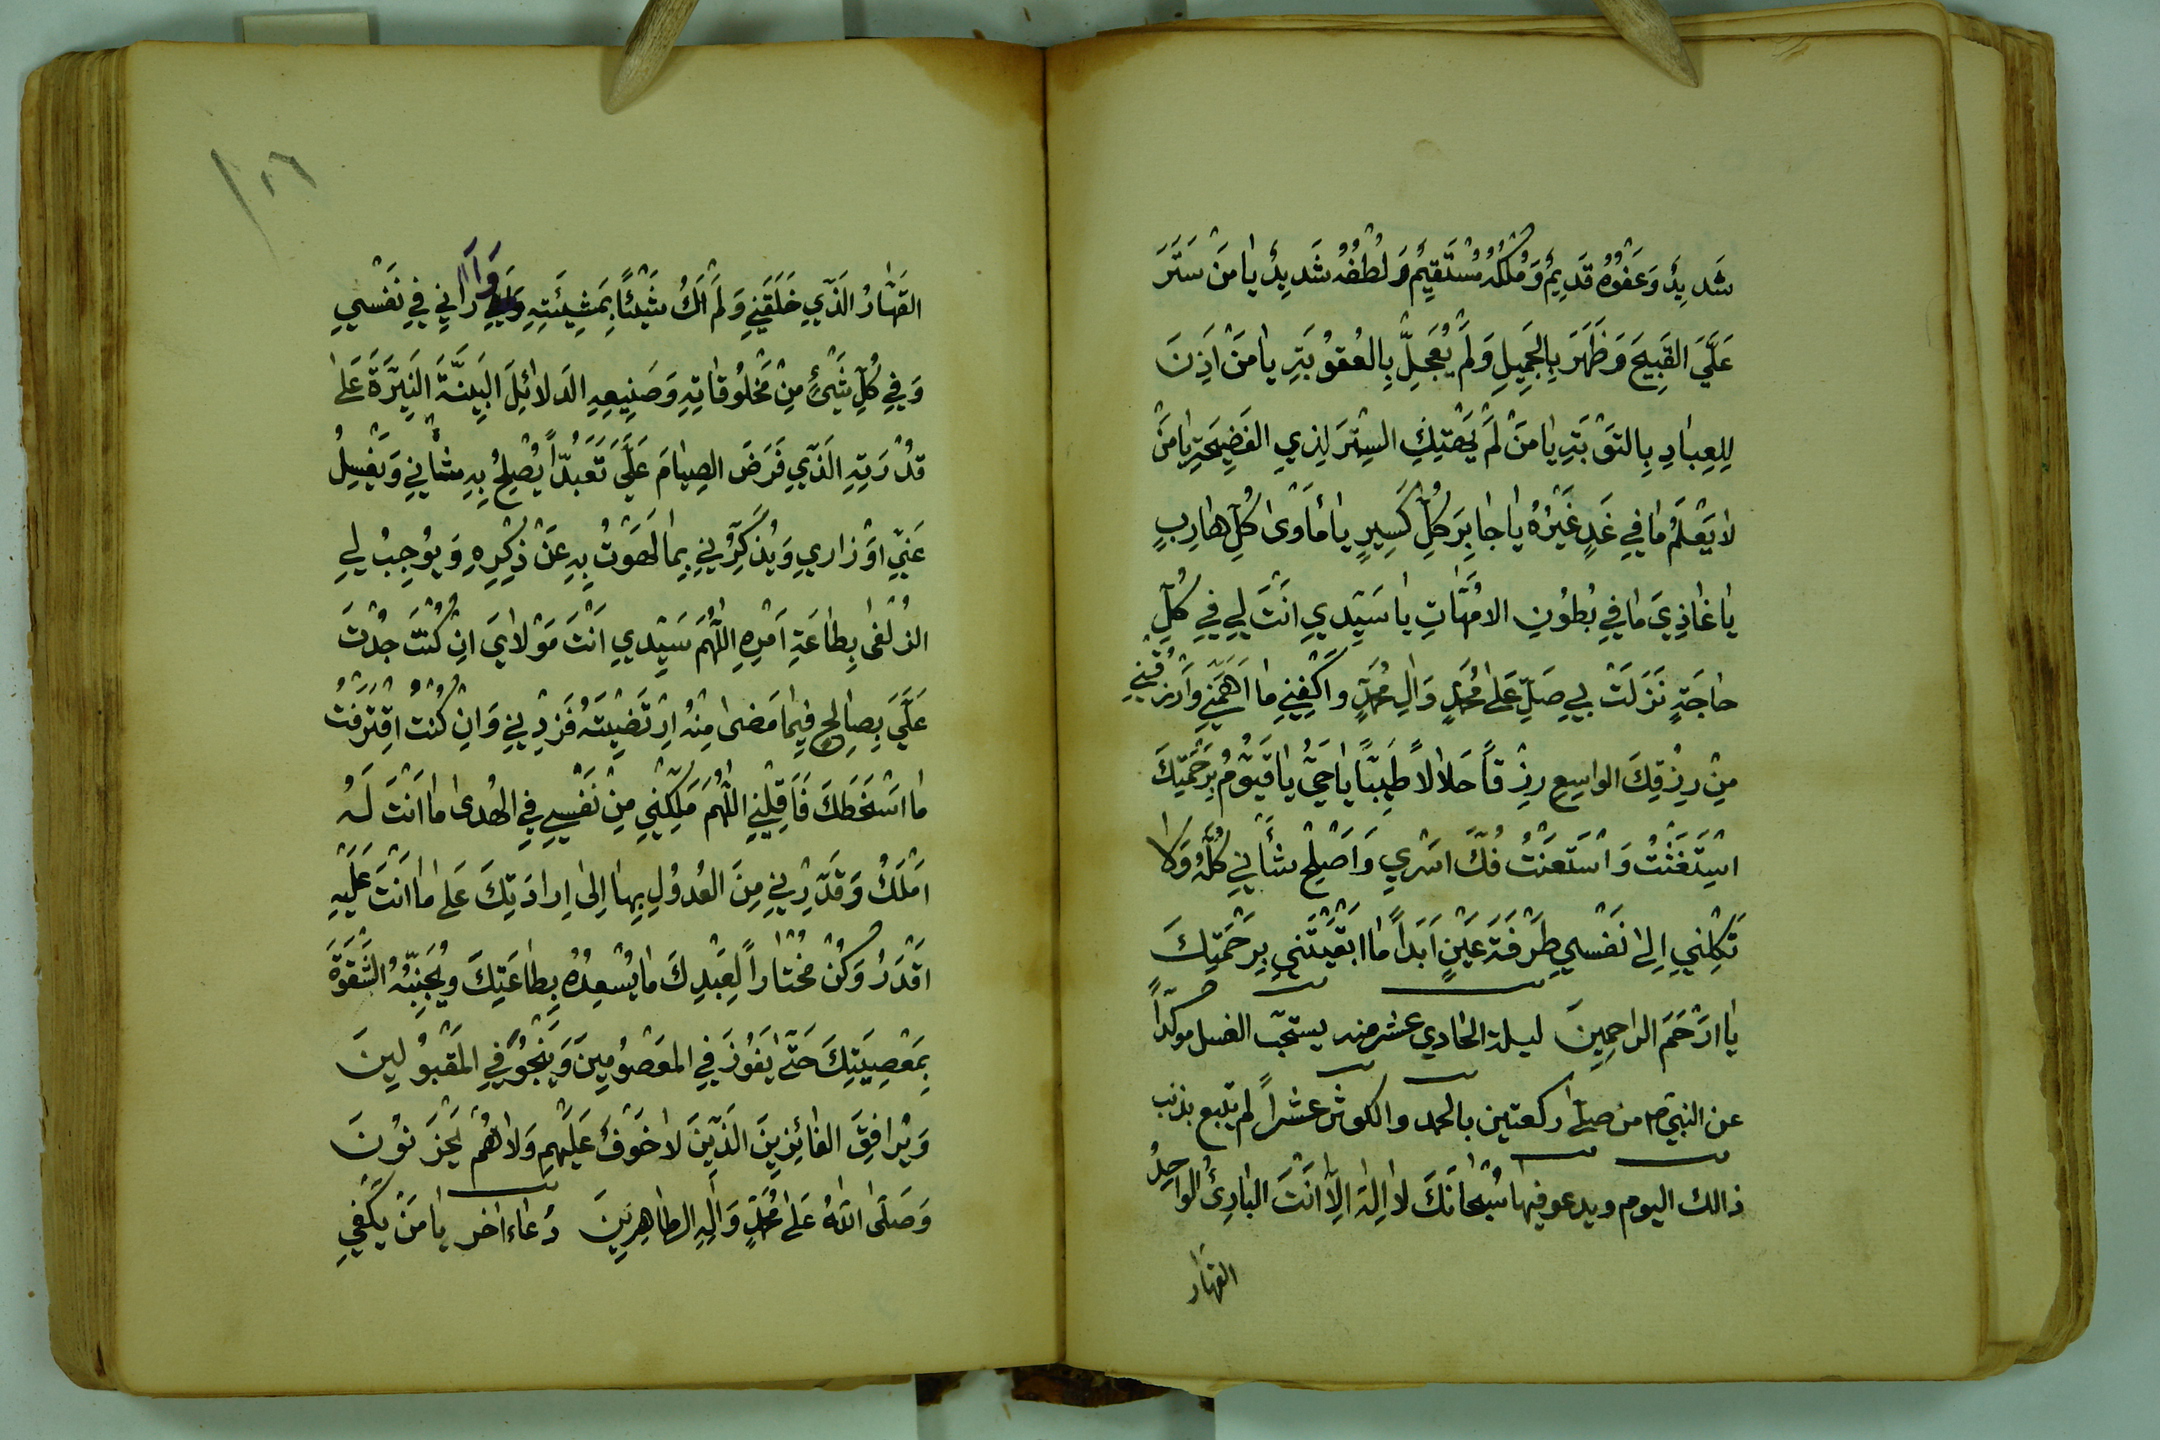 شَدِيدٌ وَعَفْوُهُ قَدِيمٌ وَمُلْكُهُ مُسْتَقِيمٌ وَلُطْفُهُ شَدِيدٌ يَا مَنْ سَتَرَ
عَلَيَّ القَبِيحَ وَظَهَرَ بِالجَمِيلِ وَلَمْ يُعَجِّلْ بِالعُقُوْبَتِهِ يَا مَنْ اَذِنَ
لِلعِبَادِ بِالتَوْبَتِهِ يَا مَنْ لَمْ يَهْتِكِ السِتْرَ لِذِي الفَضِيحَتِهِ يَا مَنْ
لَا يَعْلَمُ مَا فِي غَدٍ غَيْرُهُ يَا جَابِرَ كُلِّ كَسِيرٍ يَا مَأْوٰى كُلِّ هَارِبٍ
يَا غَاذِيَ مَا فِي بُطُوْنِ الاُمَّهَاتِ يَا سَيِّدِي اَنْتَ لِي فِي كُلِّ
حَاجَةٍ نَزَلَتْ بِي صَلِّ عَلٰى مُحَمَّدٍ وَالِ مُحَمَّدٍ وَاكْفِنِي مَا اَهَمَّنِي وَارْزُقْنِي
مِنْ رِزْقِكَ الوَاسِعِ رِزْقًا حَلَالًا طَيِّبًا يَا حَيُّ يَا قَيُّوْمُ بِرَحْمَتِكَ
اسْتَغَثْتُ وَاسْتَعَنْتُ فُكَّ اَسْرِي وَاَصْلِحْ شَأْنِي كُلَّهُ وَلَا
تَكِلْنِي اِلٰى نَفْسِي طَرْفَةَ عَيْنٍ اَبَدًا مَا اَبْقَيْتَنِي بِرَحْمَتِكَ
يَا اَرْحَمَ الرَاحِمِينَ ليلة الحادي عشر منه يستحب الغسل موكدًا
عن النبي ص من صلى ركعتين بالحمد والكوثر عشرًا لم يتبع بذنب
ذالك اليوم ويدعو فيها سُبْحَانَكَ لَا اِلٰهَ اِلَّا اَنْتَ البَادِئُ الوَاحِدُ
القهار
١٠٦
القَهَّارُ الَذِي خَلَقَنِي وَلَمْ اَكُ شَيْئًا بِمَشِيئَتِهِ وَاَرَانِي فِي نَفْسِي
وَفِي كُلِّ شَيْءٍ مِنْ مَخْلُوْقَاتِهِ وَصَنِيعِهِ الدَلَائِلَ البَيِّنَةَ النَيِّرَةَ عَلٰى
قُدْرَتِهِ الَذِي فَرَضَ الصِيَامَ عَلَيَّ تَعَبُّدًا يُصْلِحُ بِهِ شَانِي وَيَغْسِلُ
عَنِّي اَوْزَارِي وَيُذَكِّرُنِي بِمَا لَهَوْتُ بِهِ عَنْ ذِكْرِهِ وَيُوْجِبُ لِي
الزُلْفٰى بِطَاعَةِ اَمْرِهِ اللّٰهُمَّ سَيِّدِي اَنْتَ مَوْلَايَ اِنْ كُنْتَ جُدْتَ
عَلَيَّ بِصَالِحٍ فِيمَا مَضٰى مِنْهُ ارْتَضَيْتَهُ فَزِدْنِي وَاِنْ كُنْتُ اقْتَرَفْتُ
مَا اَسْخَطَكَ فَاَقِلْنِي اللّٰهُمَّ مَلِّكْنِي مِنْ نَفْسِي فِي الهُدٰى مَا اَنْتَ لَهُ
اَمْلَكُ وَقَدِّرْنِي مِنَ العُدُوْلِ بِهَا اِلٰى اِرَادَتِكَ عَلٰى مَا اَنْتَ عَلَيْهِ
اَقْدَرُ وَكُنْ مُخْتَارًا لِعَبْدِكَ مَا يُسْعِدُهُ بِطَاعَتِكَ وَيُجَنِّبُهُ الشَقْوَةَ
بِمَعْصِيَتِكَ حَتّٰى يَفُوْزَ فِي المَعْصُوْمِينَ وَيَنْجُوَ فِي المَقْبُوْلِينَ
وَيُرَافِقَ الفَائِزِينَ الَذِينَ لَا خَوْفٌ عَلَيْهِمْ وَلَا هُمْ يَحْزَنُوْنَ
وَصَلَّى اللّٰهُ عَلٰى مُحَمَّدٍ وَالِهِ الطَاهِرِينَ دُعَاء اخر يَا مَنْ يَكْفِي